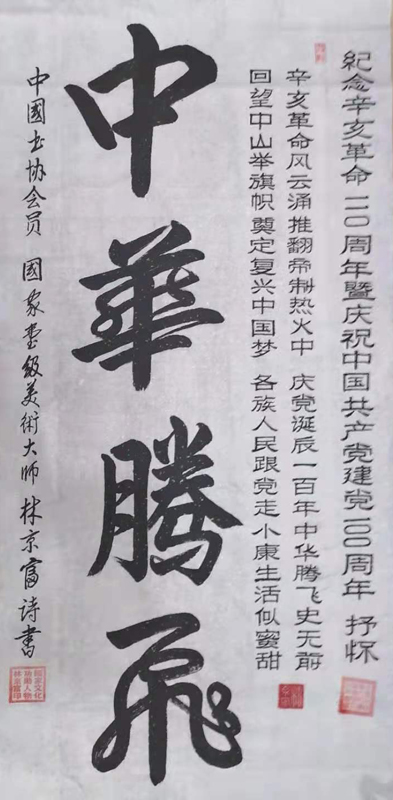 紀念辛亥革命一一0周年暨庆祝中国共产党建党一00周年 抒怀
辛亥革命风云涌推翻帝制热火中 庆党诞辰一百年中华腾飞史无前
回望中山举旗帜奠定复兴中国梦 各族人民跟党走小康生活似蜜甜
中華騰飛
中國书协会员 國家壹级美術大师 林京富诗書